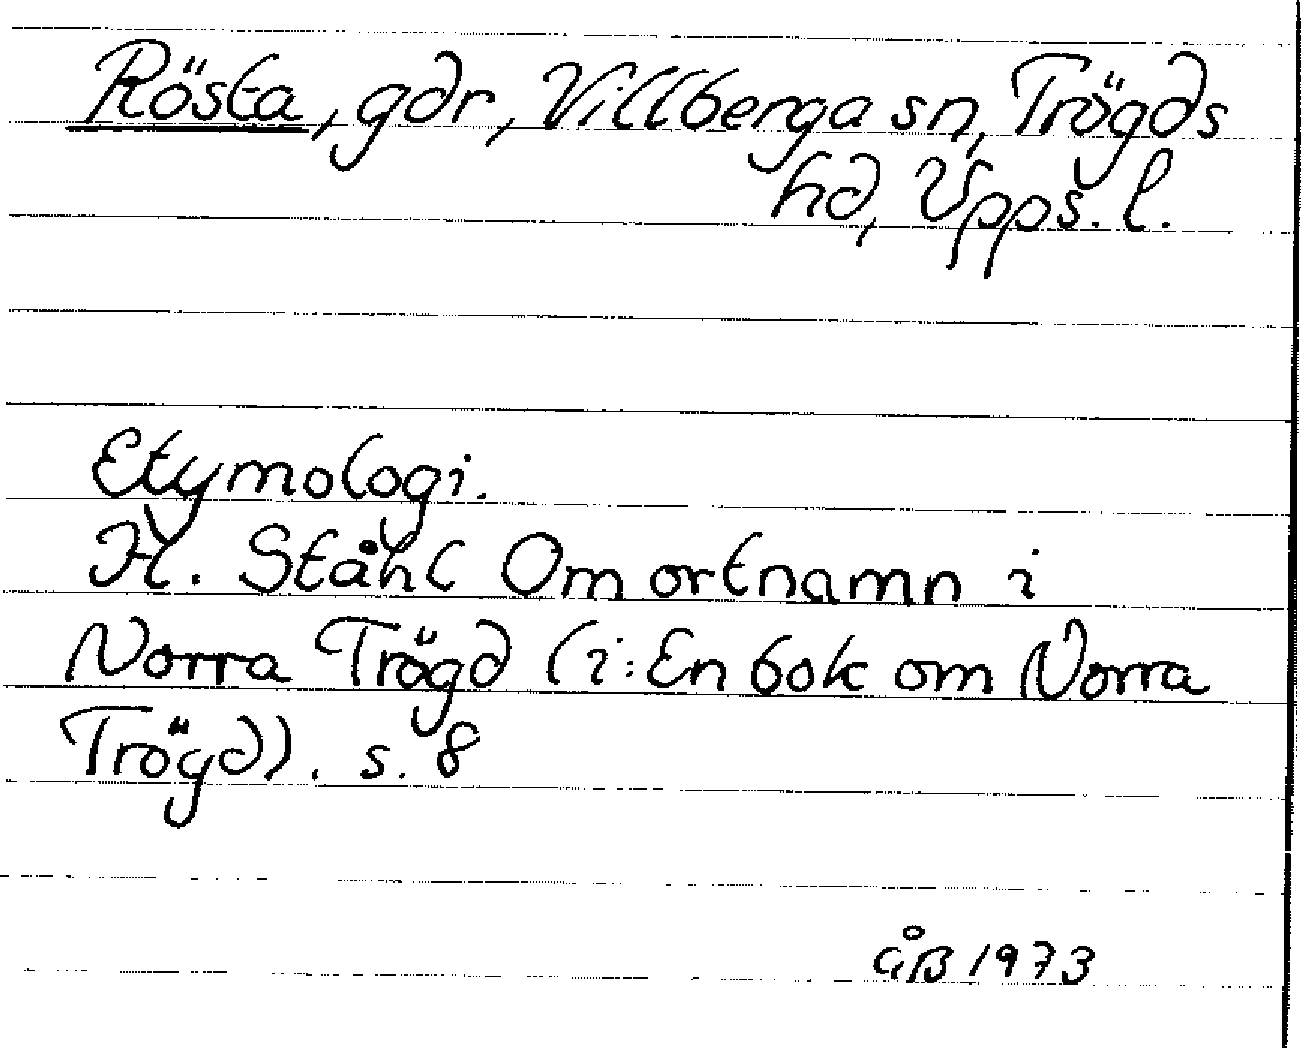 Rösta, gdr, Villberga sn, Trögds
hd, Upps. l.
Etymologi.
H. Ståhl Om ortnamn i
Norra Trögd (i: En bok om Norra
Trögd). s. 8
ÅB 1973